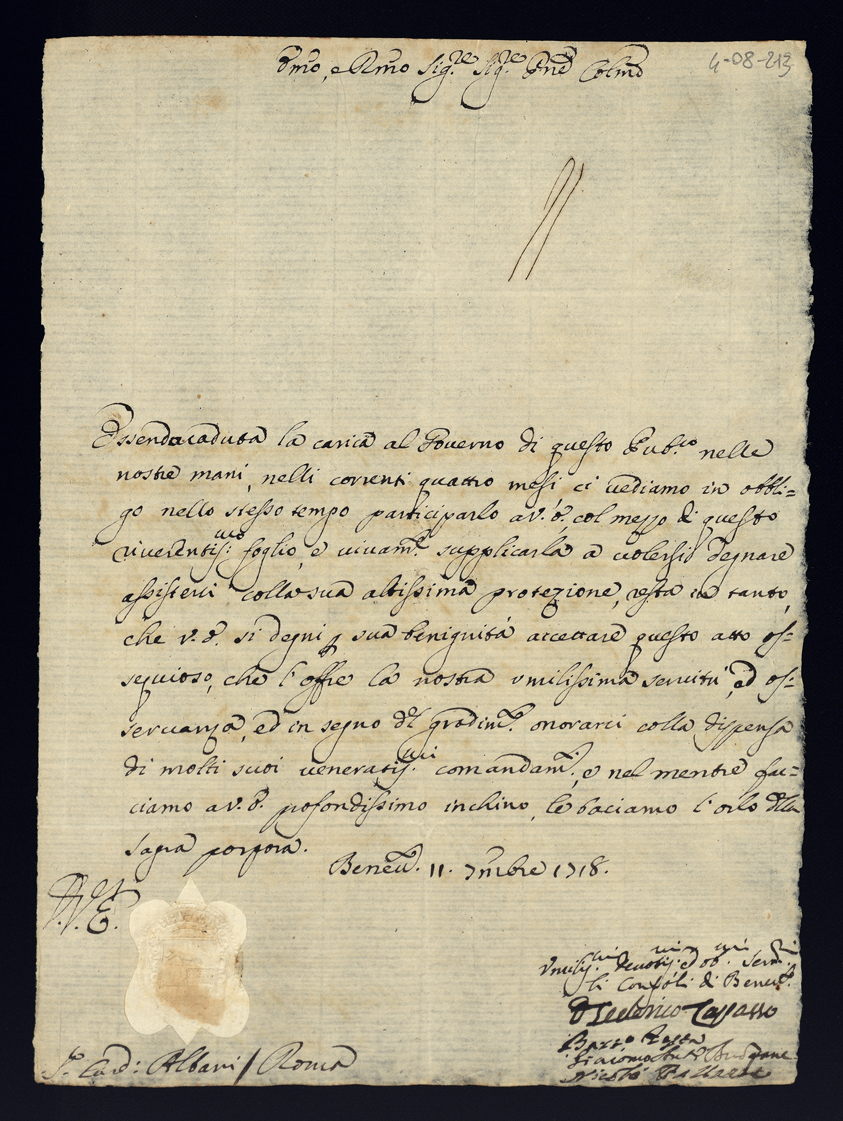 Emo, e Rmo Sig.re Sig.re Pne Colmo
4-08-213
Essendo caduta la carica al Governo di questo Pub.co nelle
nostre mani, nelli correnti quattro mesi, ci vediamo in obbli=
go nello stesso tempo participarlo a V.E. col mezzo di questo
riverentiss:mo foglio, e vivam.te supplicarla a volersi degnare
assisterci colla sua altissima protezione, resta in tanto,
che V.E. si degni p sua benignità accettare questo atto os=
sequioso, che l'offre la nostra umilissima servitù, ed os=
servanza, ed in segno del gradim.to onorarci colla dispensa
di molti suoi veneratis.mi comandam.ti, e nel mentre fac=
ciamo a V.E. pofondissimo inchino, le baciamo l'orlo della
sagra porpora.
Benev.to 11. 7mbre 1718.
V.E.
Umilis.mi Devotis.mi ed ob.mi Serv.ri
li Consoli di Benev.to
Federico Capasso
Giacomo
Nicolò
S.r Card: Albani / Roma